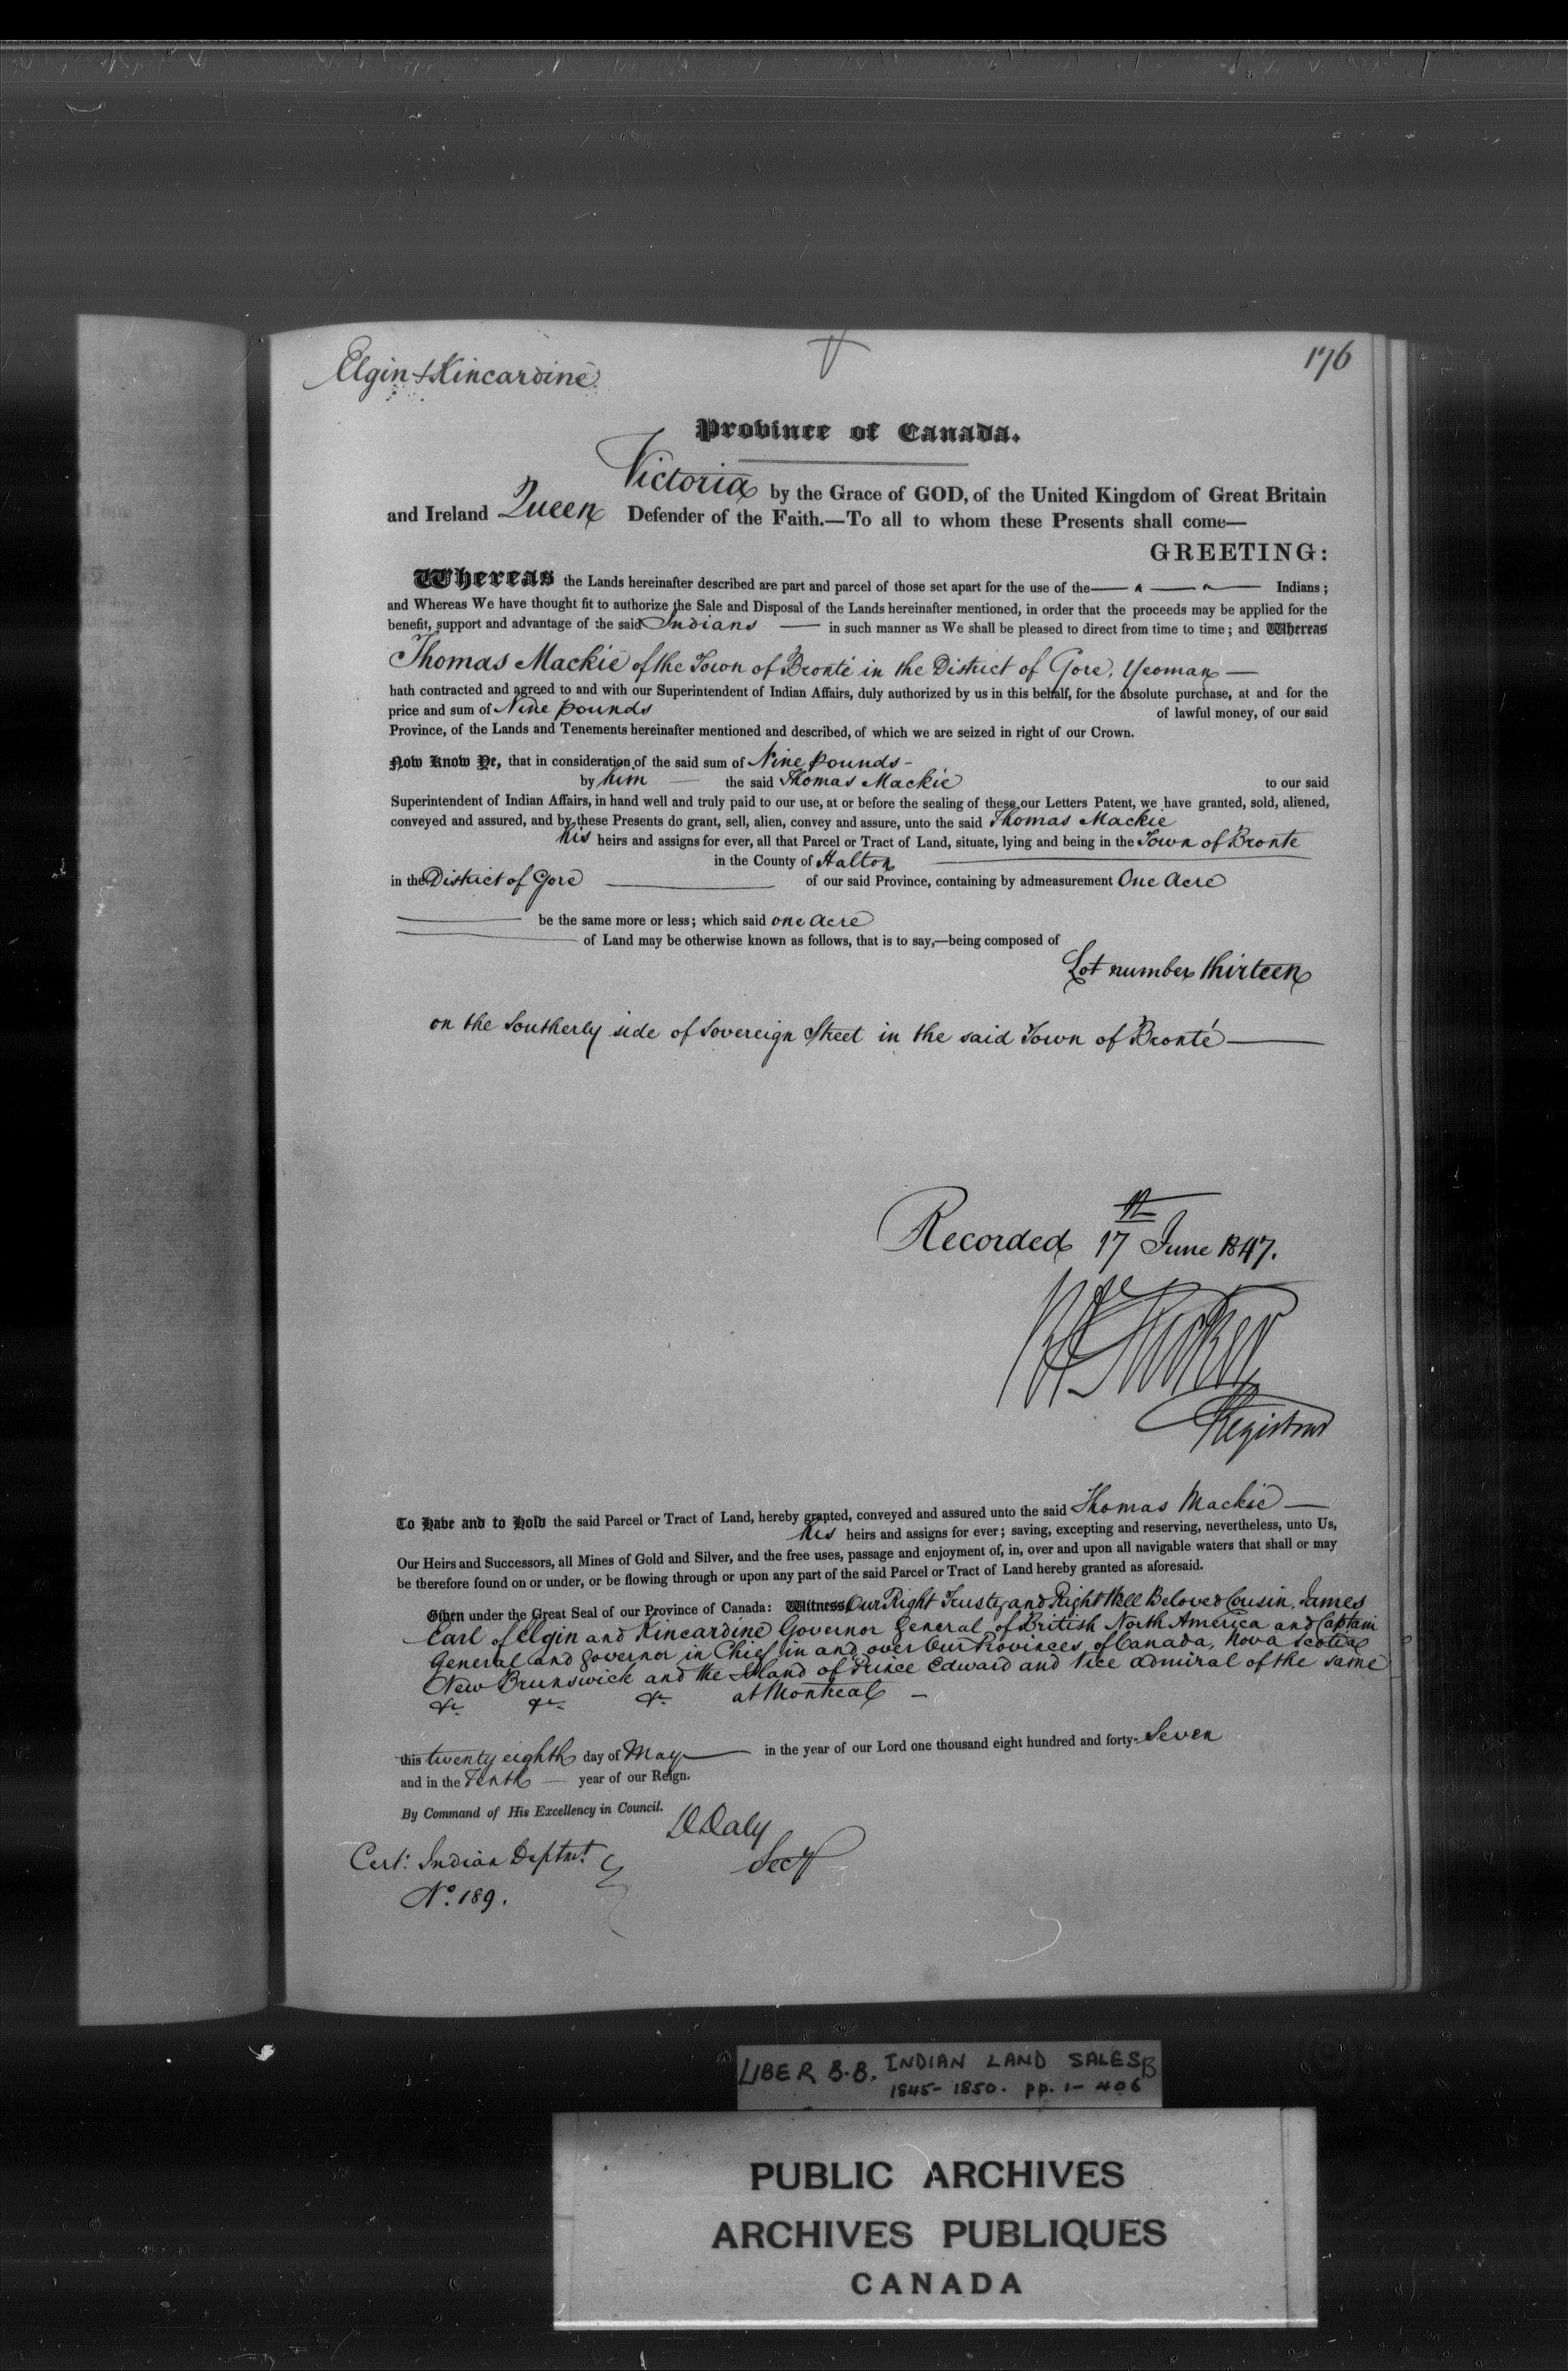 Elgin & Kincardine
176
Province of Canada.
Victoria by the Grace of GOD, of the United Kingdom of Great Britain
and Ireland Queen Defender of the Faith.—To all to whom these Presents shall come—
GREETING:
Whereas the Lands hereinafter described are part and parcel of those set apart for the use of the — — Indians;
and Whereas We have thought fit to authorize the Sale and Disposal of the Lands hereinafter mentioned, in order that the proceeds may be applied for the
benefit, support and advantage of the said Indians — in such manner as We shall be pleased to direct from time to time; and Whereas
Thomas Mackie of the Town of Bronté in the District of Gore, Yeoman —
hath contracted and agreed to and with our Superintendent of Indian Affairs, duly authorized by us in this behalf, for the absolute purchase, at and for the
price and sum of Nine pounds of lawful money, of our said
Province, of the Lands and Tenements hereinafter mentioned and described, of which we are seized in right of our Crown.
Now Know Ye, that in consideration of the said sum of Nine pounds -
by him — the said Thomas Mackie to our said
Superintendent of Indian Affairs, in hand well and truly paid to our use, at or before the sealing of these our Letters Patent, we have granted, sold, aliened,
conveyed and assured, and by these Presents do grant, sell, alien, convey and assure, unto the said Thomas Mackie
his heirs and assigns for ever, all that Parcel or Tract of Land, situate, lying and being in the Town of Bronte
in the County of Halton
in the District of Gore of our said Province, containing by admeasurement One Acre
be the same more or less; which said one Acre
of Land may be otherwise known as follows, that is to say,—being composed of
Lot number thirteen
on the Southerly side of Sovereign Street in the said Town of Bronté —
Recorded 17th June 1847.
Registrar
To Have and to Hold the said Parcel or Tract of Land, hereby granted, conveyed and assured unto the said Thomas Mackie —
his heirs and assigns for ever; saving, excepting and reserving, nevertheless, unto Us,
Our Heirs and Successors, all Mines of Gold and Silver, and the free uses, passage and enjoyment of, in, over and upon all navigable waters that shall or may
be therefore found on or under, or be flowing through or upon any part of the said Parcel or Tract of Land hereby granted as aforesaid.
Given under the Great Seal of our Province of Canada: Witness Our Right Trusty and Right Well Beloved Cousin, James
Earl of Elgin and Kincardine Governor General of British North America and Captain
General and governor in Chief in and over Our Provinces of Canada, Nova Scotia
New Brunswick and the Island of Prince Edward and Vice Admiral of the same
&c &c &c at Montreal —
this twenty eighth day of May — in the year of our Lord one thousand eight hundred and forty-Seven
and in the Tenth — year of our Reign.
By Command of His Excellency in Council.
D Daly
Secy
Cert: Indian Deptmt
No. 189.
LIBER B.B. INDIAN LAND SALES B
1845-1850. pp. 1-406
PUBLIC ARCHIVES
ARCHIVES PUBLIQUES
CANADA